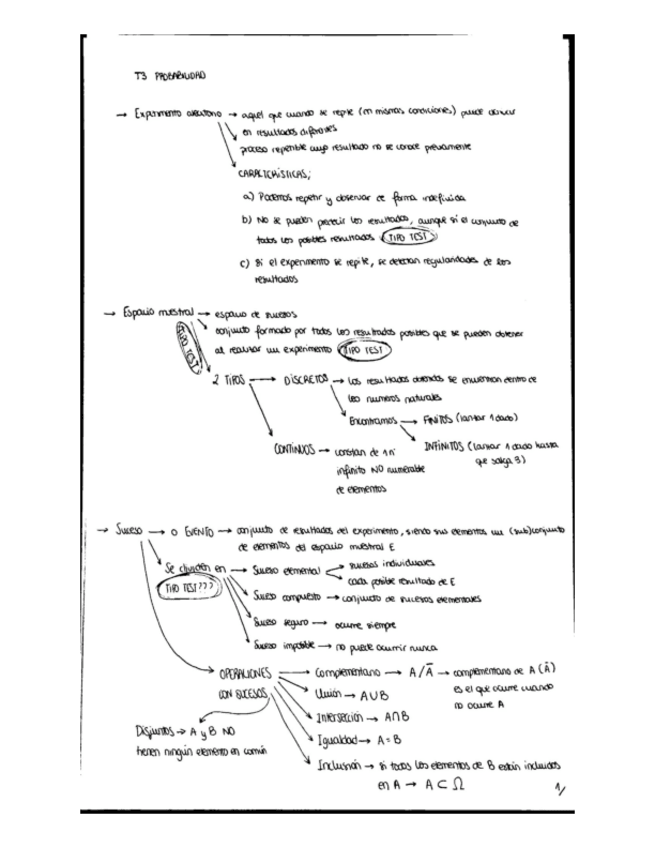 T3 PROBABILIDAD
→ Experimento aleatorio → aquel que cuando se repite (en mismas condiciones) puede derivar
en resultados diferentes
proceso repetible cuyo resultado no se conoce previamente
CARACTERÍSTICAS;
a) Podemos repetir y observar de forma indefinida
b) No se pueden predecir los resultados, aunque si el conjunto de
todos los posibles resultados (TIPO TEST)
c) Si el experimento se repite, se detectan regularidades de los
resultados
→ Espacio muestral → espacio de sucesos
conjunto formado por todos los resultados posibles que se pueden obtener
al realizar un experimento (TIPO TEST)
TIPO TEST
2 TIPOS → DISCRETOS → Los resultados obtenidos se encuentran dentro de
los numeros naturales
Encontramos → FINITOS (lanzar 1 dado)
INFINITOS (Lanzar 1 dado hasta
que salga 3)
CONTINUOS → constan de 1 nº
infinito NO numerable
de elementos
→ Suceso → o EVENTO → conjunto de resultados del experimento, siendo sus elementos un (sub)conjunto
de elementos del espacio muestral E
Se dividen en → Suceso elemental → sucesos individuales
TIPO TEST???
cada posible resultado de E
Suceso compuesto → conjunto de sucesos elementales
Suceso seguro → ocurre siempre
Suceso imposible → no puede ocurrir nunca
OPERACIONES → Complementario → A/Ā → complementario de A (Ā)
CON SUCESOS
es el que ocurre cuando
no ocurre A
Unión → A∪B
Intersección → A∩B
Disjuntos → A y B NO
tienen ningún elemento en común
Igualdad → A = B
Inclusión → si todos los elementos de B están incluidos
en A → A ⊂ Ω
1/